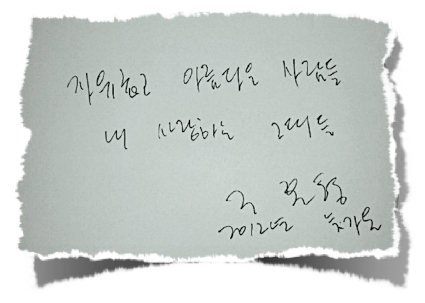 자유롭고 아름다운 사람들
내 사랑하는 그대들
2012년 늦가을